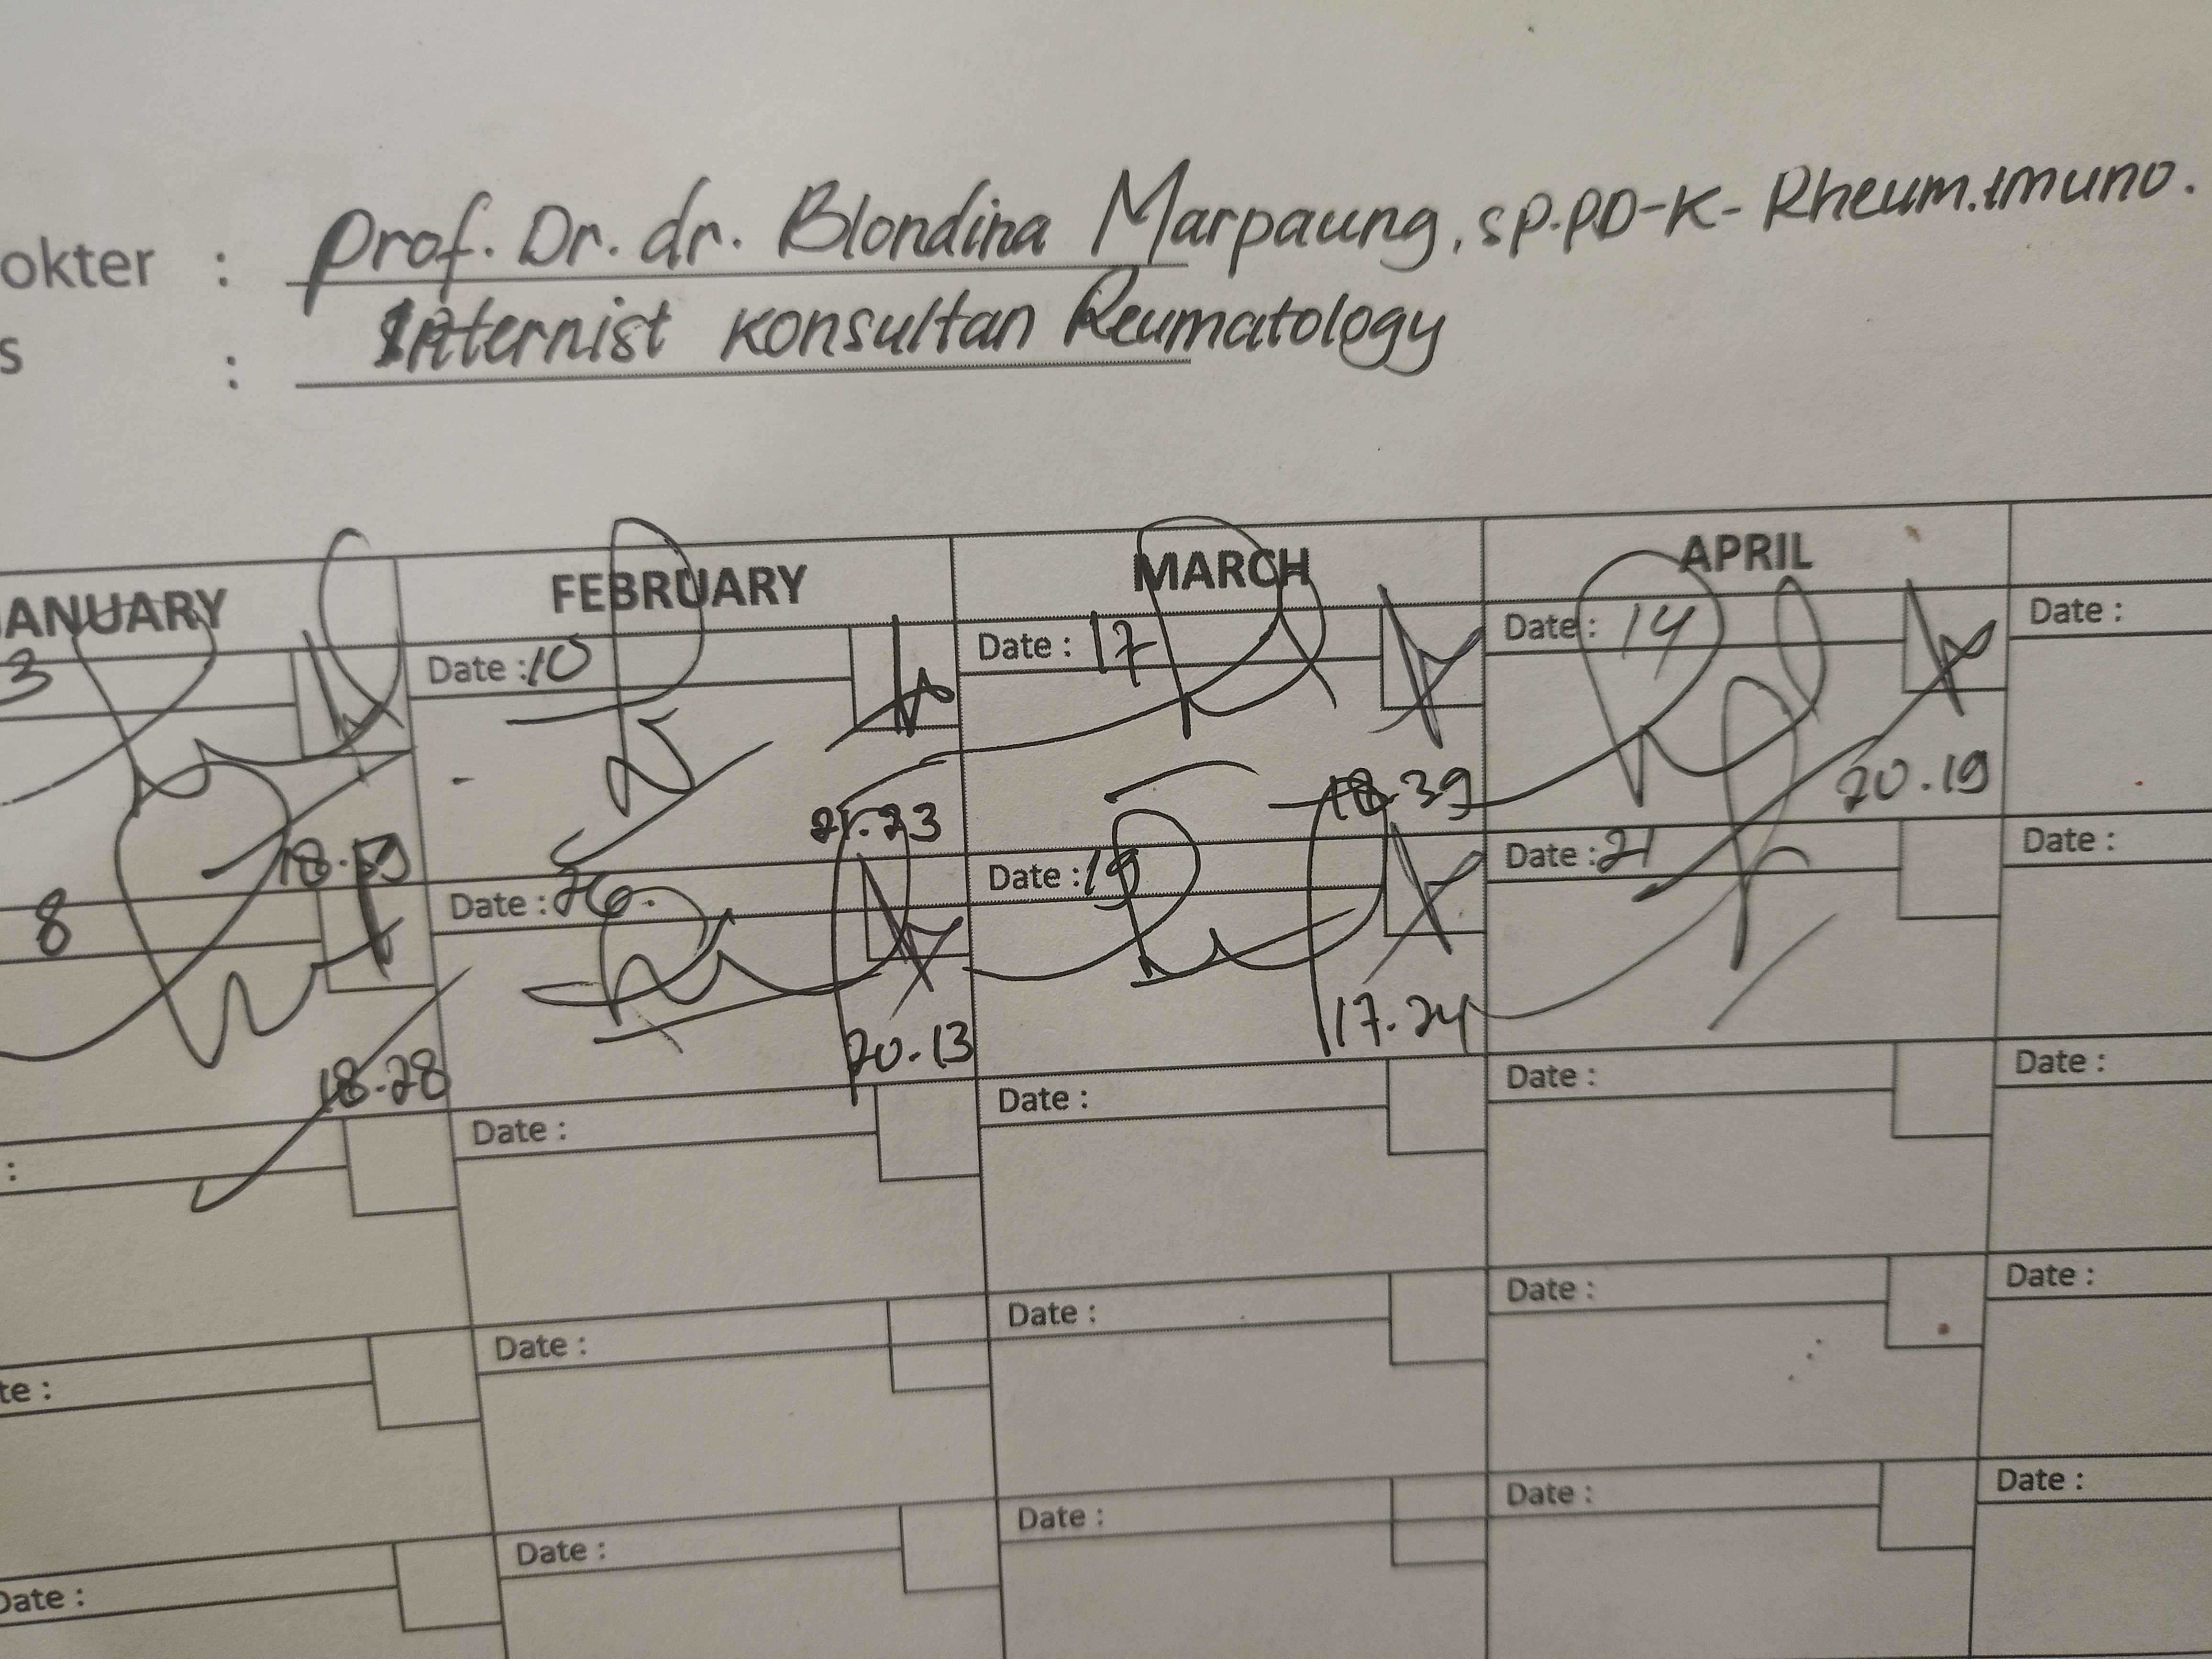 okter : Prof. Dr. dr. Blondina Marpaung, SP.PD-K- Rheum.imuno.
s : Internist Konsultan Reumatology
ANUARY FEBRUARY MARCH APRIL
3 Date : 10 Date : 17 Date : 14 Date :
18.59 21.23 18.39 20.19
8 Date : 26. Date : 19 Date : 21 Date :
18.28 20.13 17.24
: Date : Date : Date : Date :
te : Date : Date : Date : Date :
Date : Date : Date : Date : Date :